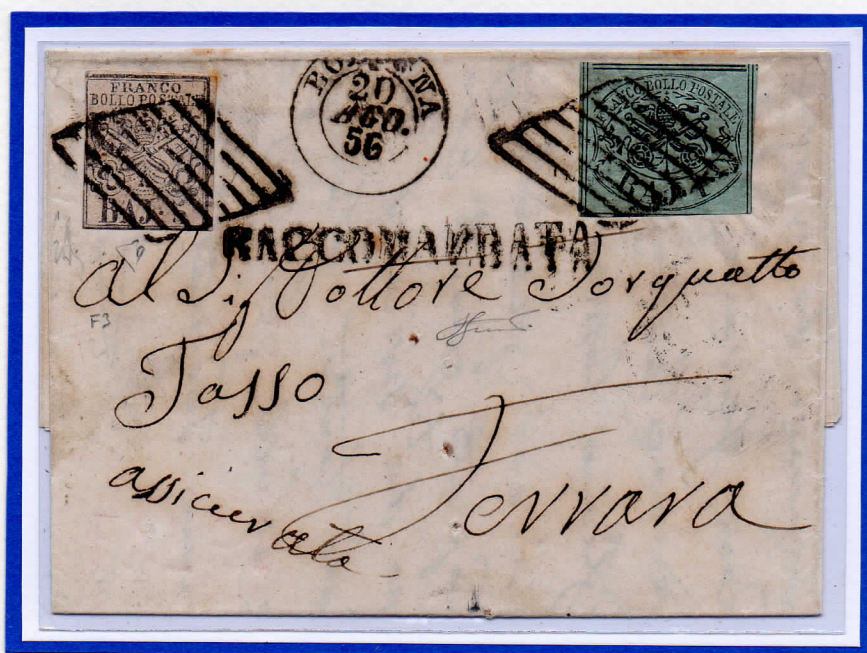 FRANCO
BOLLO POSTALE
8 8
BAJ.
BOLOGNA
20
AGO.
56
FRANCO BOLLO POSTALE
BAJ
RACCOMANDATA
Al Sig Dottore Torquatto
F3
Tasso
assicurata
Ferrara